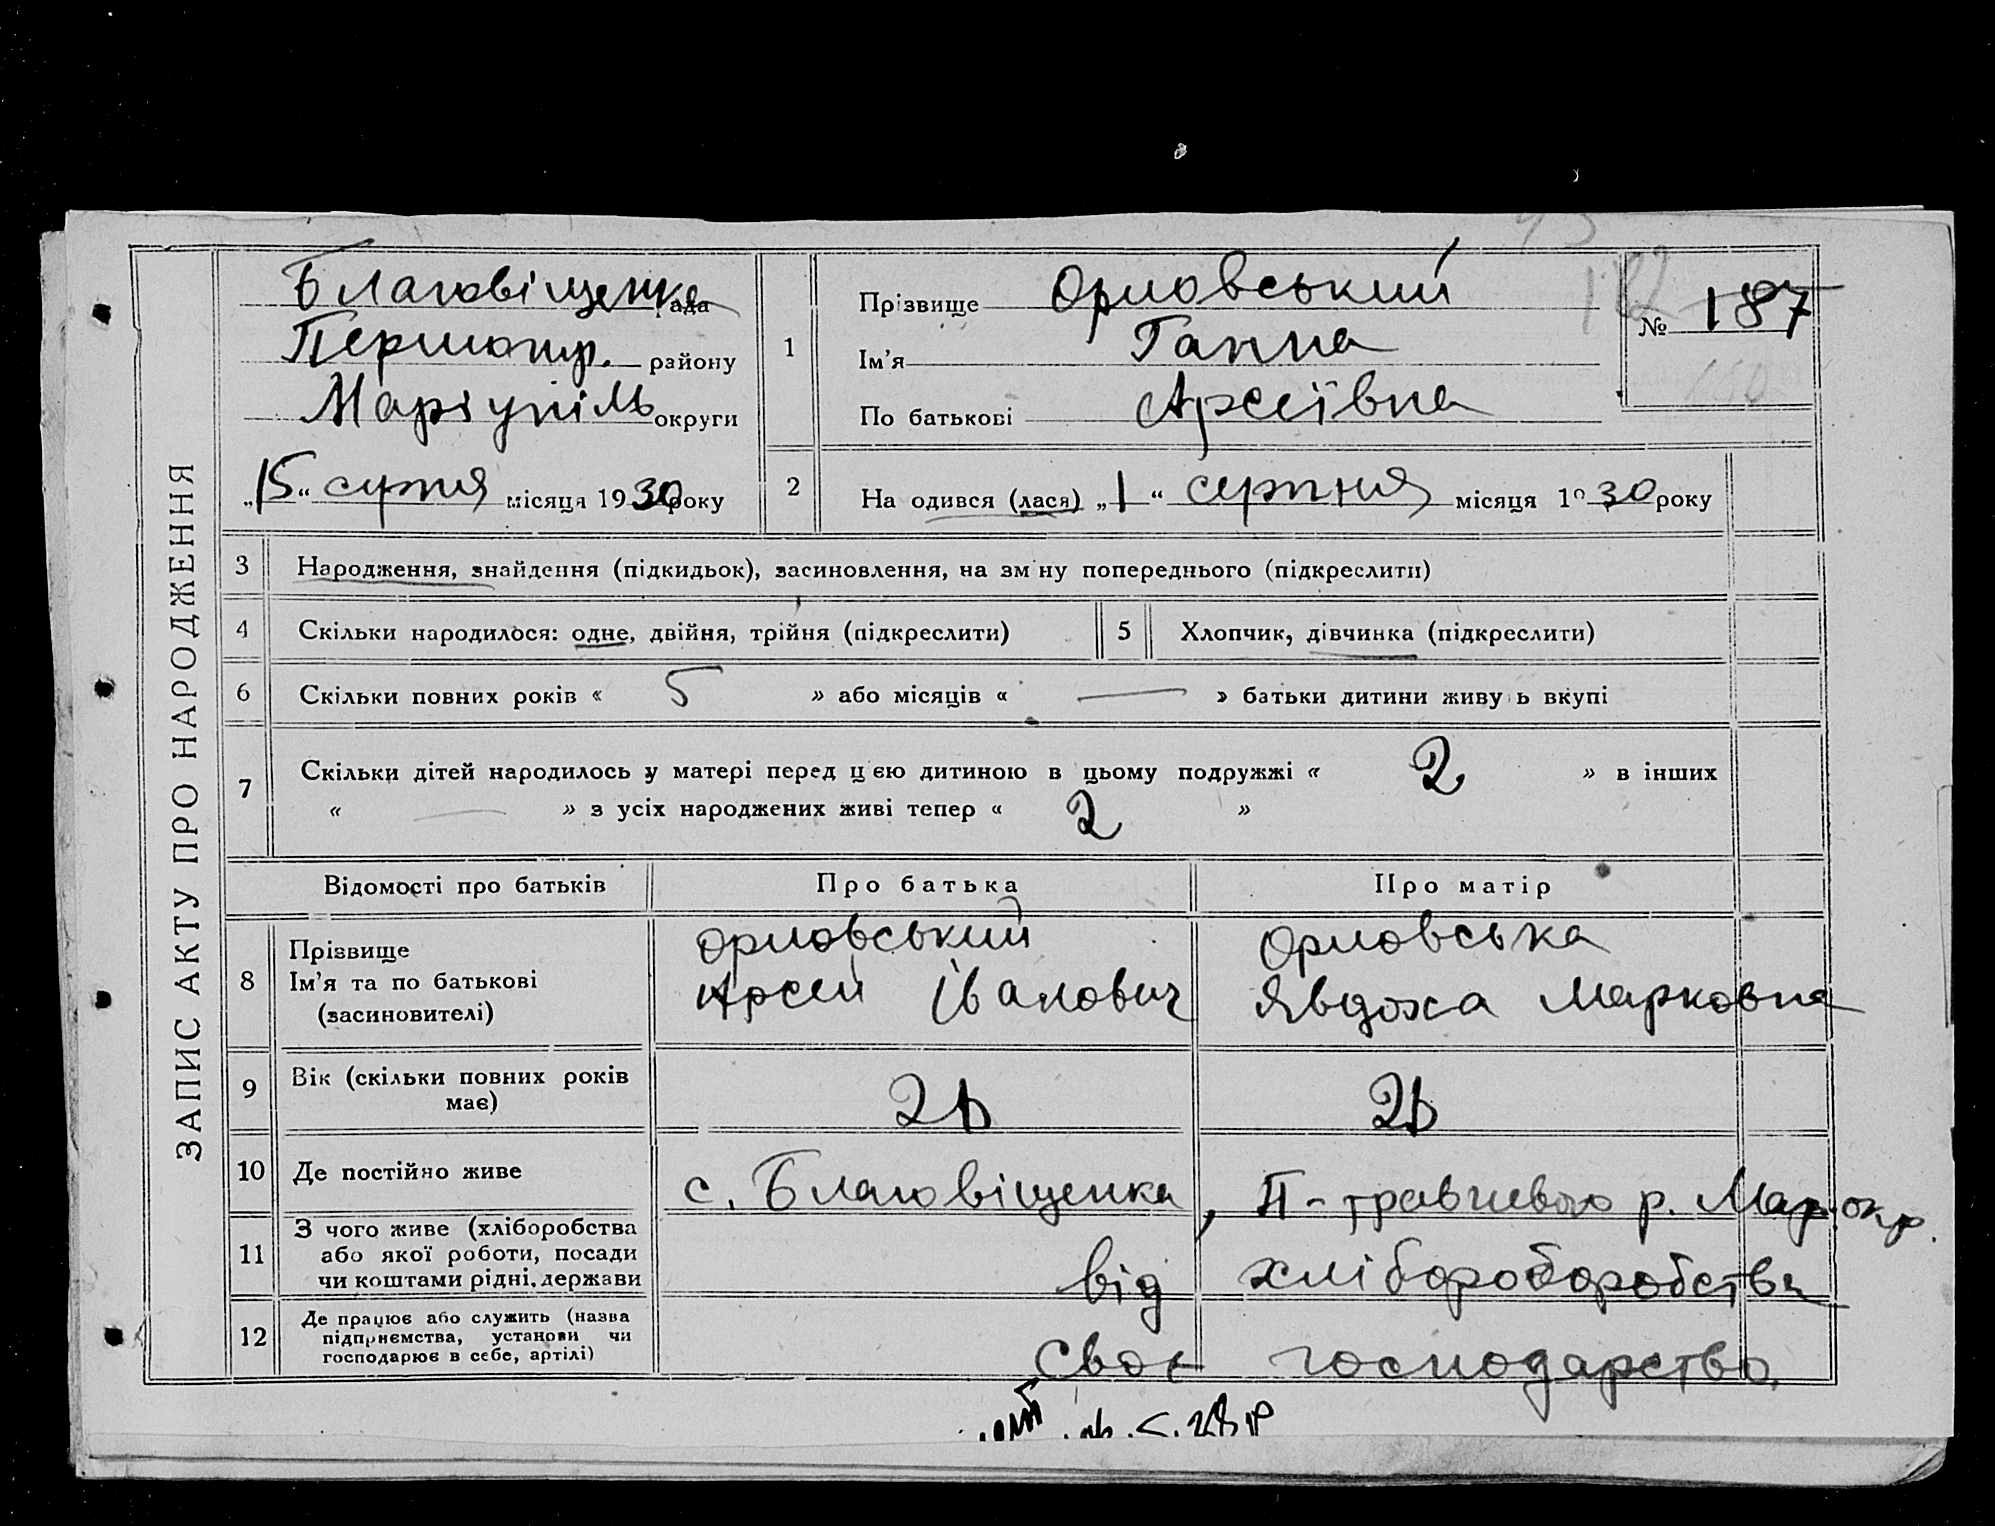 ЗАПИС АКТУ ПРО НАРОДЖЕННЯ
Благовіщенка рада
району
Маріупіль округи
„15“ серпня місяця 1930 року
1
Прізвище Орловський
Ім'я Ганна
По батькові Арсіївна
№ 187
182
2
На одився (лася) „1“ серпня місяця 19 30 року
3 Народження, знайдення (підкидьок), засиновлення, на зм ну попереднього (підкреслити)
4 Скільки народилося: одне, двійня, трійня (підкреслити) 5 Хлопчик, дівчинка (підкреслити)
6 Скільки повних років « 5 » або місяців « — » батьки дитини живу ь вкупі
7 Скільки дітей народилось у матері перед ц єю дитиною в цьому подружжі « 2 » в інших
« — » з усіх народжених живі тепер « 2 »
Відомості про батьків Про батька Про матір
8 Прізвище
Ім'я та по батькові
(засиновителі)
Орловський
Арсей Іванович
Орловська
Явдоха Марковна
9 Вік (скільки повних років
має)
26 26
10 Де постійно живе с. Благовіщенка, П-травневого р. Мар. окр.
11 З чого живе (хліборобства
або якої роботи, посади
чи коштами рідні, держави
від хліборо
12 Де працює або служить (назва
підприємства, установи чи
господарює в себе, артілі)
своє господарство.